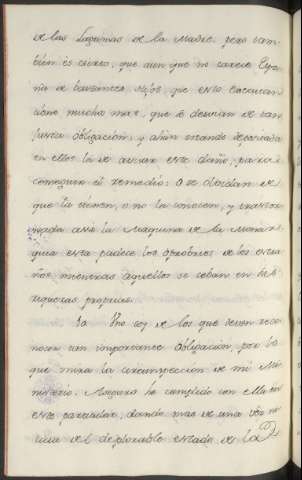 de las Lagrimas de la Madre, pero tam
bien es cierto, que aun que no carece Espa
ña de bastantes hijos, que esto
tiene mucho mas, que se desvian de tan
justa obligación, y
en ellos la de avisar este daño, para
conseguir el remedio: O se olvidan de
que la tienen, o no la conocen, y
assi la Maquina de la Monar
quia esta padece los oprobrios de los estra
ños mientras aquellos se ceban en las
riquezas propias.
Yo soy de los que deven reco
nocer tan importante obligación, por lo
que mira la circumspeccion de mi Mi
nisterio. Asegura he cumplido con ella en
este particular, dando mas de una vez no
ticia del deplorable estado de la